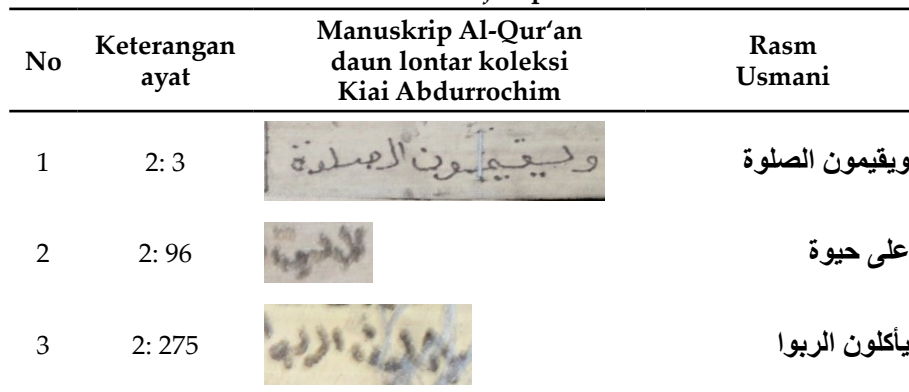 No
Keterangan
ayat
Manuskrip Al-Qur‘an
daun lontar koleksi
Kiai Abdurrochim
Rasm
Usmani
1
2: 3
ويقيمون الصلوة
ويقيمون الصلوة
2
2: 96
على حيوة
3
2: 275
يأكلون الربوا